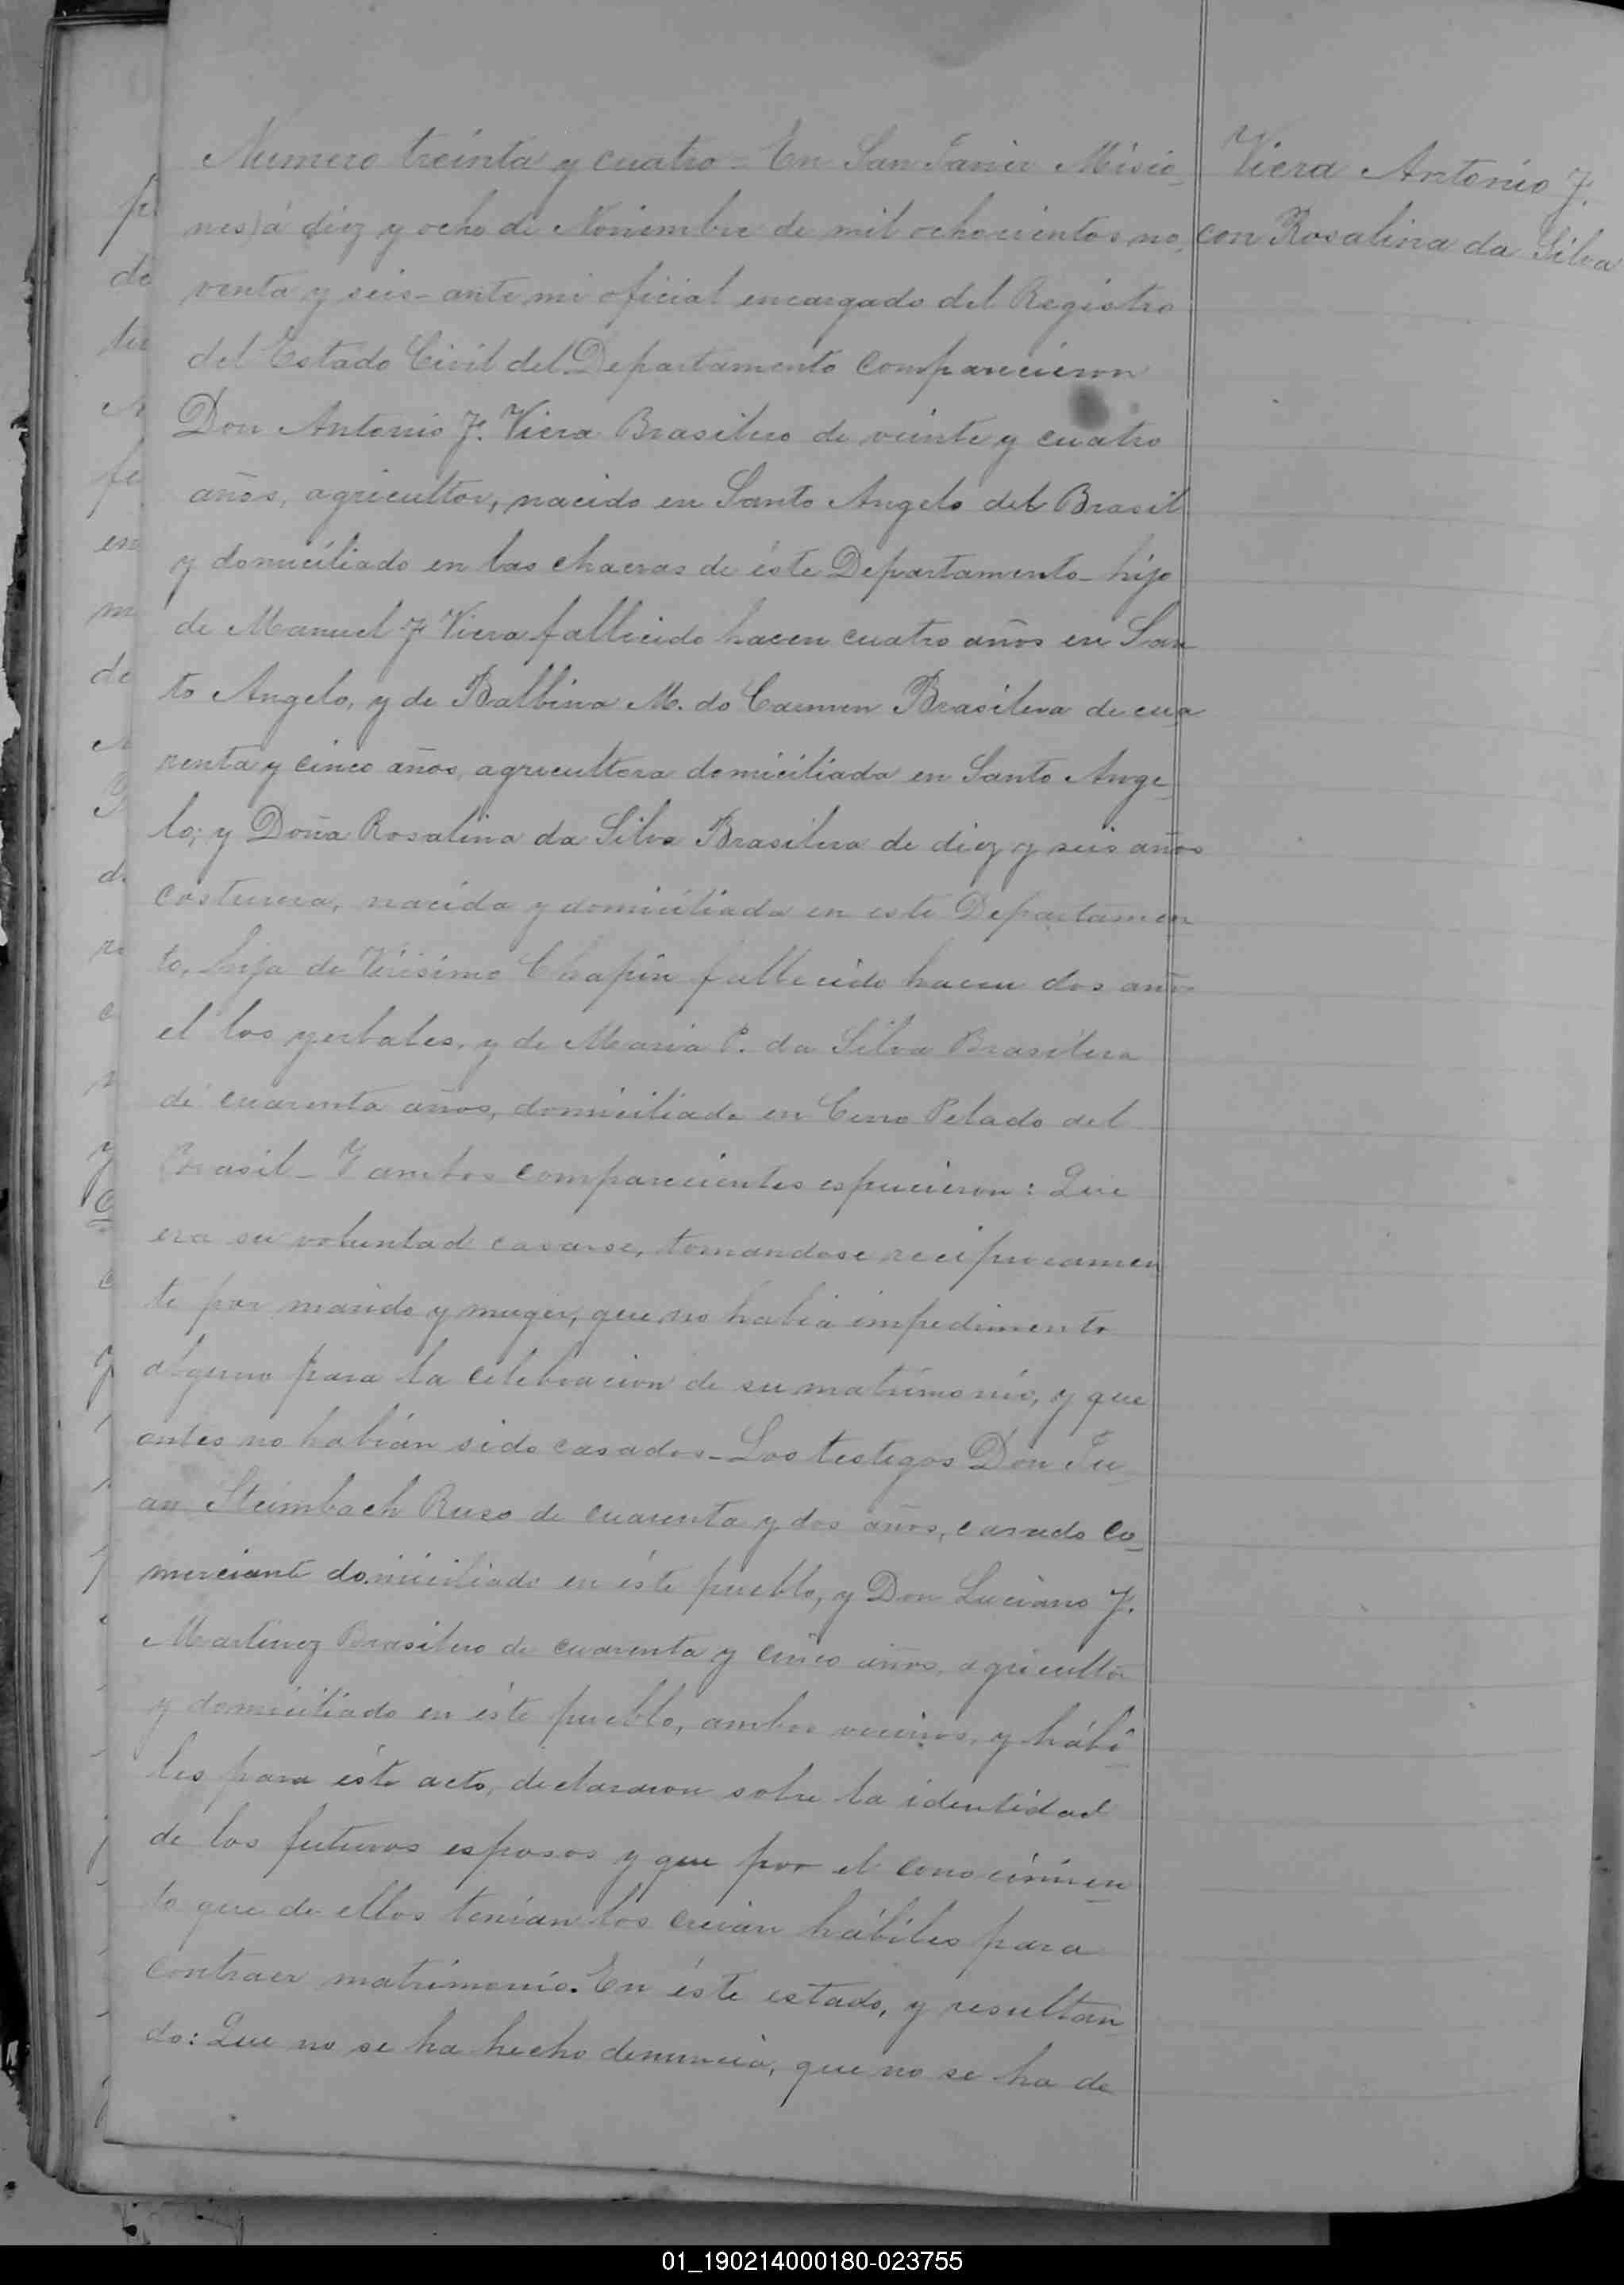 Numero treinta y cuatro - En San Javier Misio_
nes) á diez y ocho de Noviembre de mil ochocientos no_
venta y seis - ante mi oficial encargado del Registro
del Estado Civil del Departamento comparecieron
Don Antonio J. Viera Brasilero de veinte y cuatro
años, agricultor, nacido en Santo Angelo del Brasil
y domiciliado en las chacras de éste Departamento - hijo
de Manuel J Viera fallecido hacen cuatro años en San
to Angelo, y de Balbina M. do Carmen Brasilera de cua
renta y cinco años, agricultora domiciliada en Santo Ange_
lo; y Doña Rosalina da Silva Brasilera de diez y seis años
costurera, nacida y domiciliada en este Departamen
to, hija de Virisimo Chapin fallecido hacen dos años
el los yerbales, y de Maria P. da Silva Brasilera
de cuarenta años, domiciliada en Cerro Pelado del
Brasil - Y ambos comparecientes espucieron: Que
era su voluntad casarse, tomandose reciprocamen
te por marido y muger, que no habia impedimento
alguno para la celebracion de su matrimonio, y que
antes no habían sido casados - Los testigos Don Ju_
an Steimbach Ruso de cuarenta y dos años, casado co_
merciante domiciliado en éste pueblo, y Don Luciano J.
Martinez Brasilero de cuarenta y cinco años, agricultor
y domiciliado en éste pueblo, ambos vecinos, y hábi_
les para éste acto, declararon sobre la identidad
de los futuros esposos y que por el conocimien_
to que de ellos tenían los creian hábiles para
contraer matrimonio. En éste estado, y resultan
do: Que no se ha hecho denuncia, que no se ha de
Viera Antonio J.
con Rosalina da Silva
01_190214000180-023755